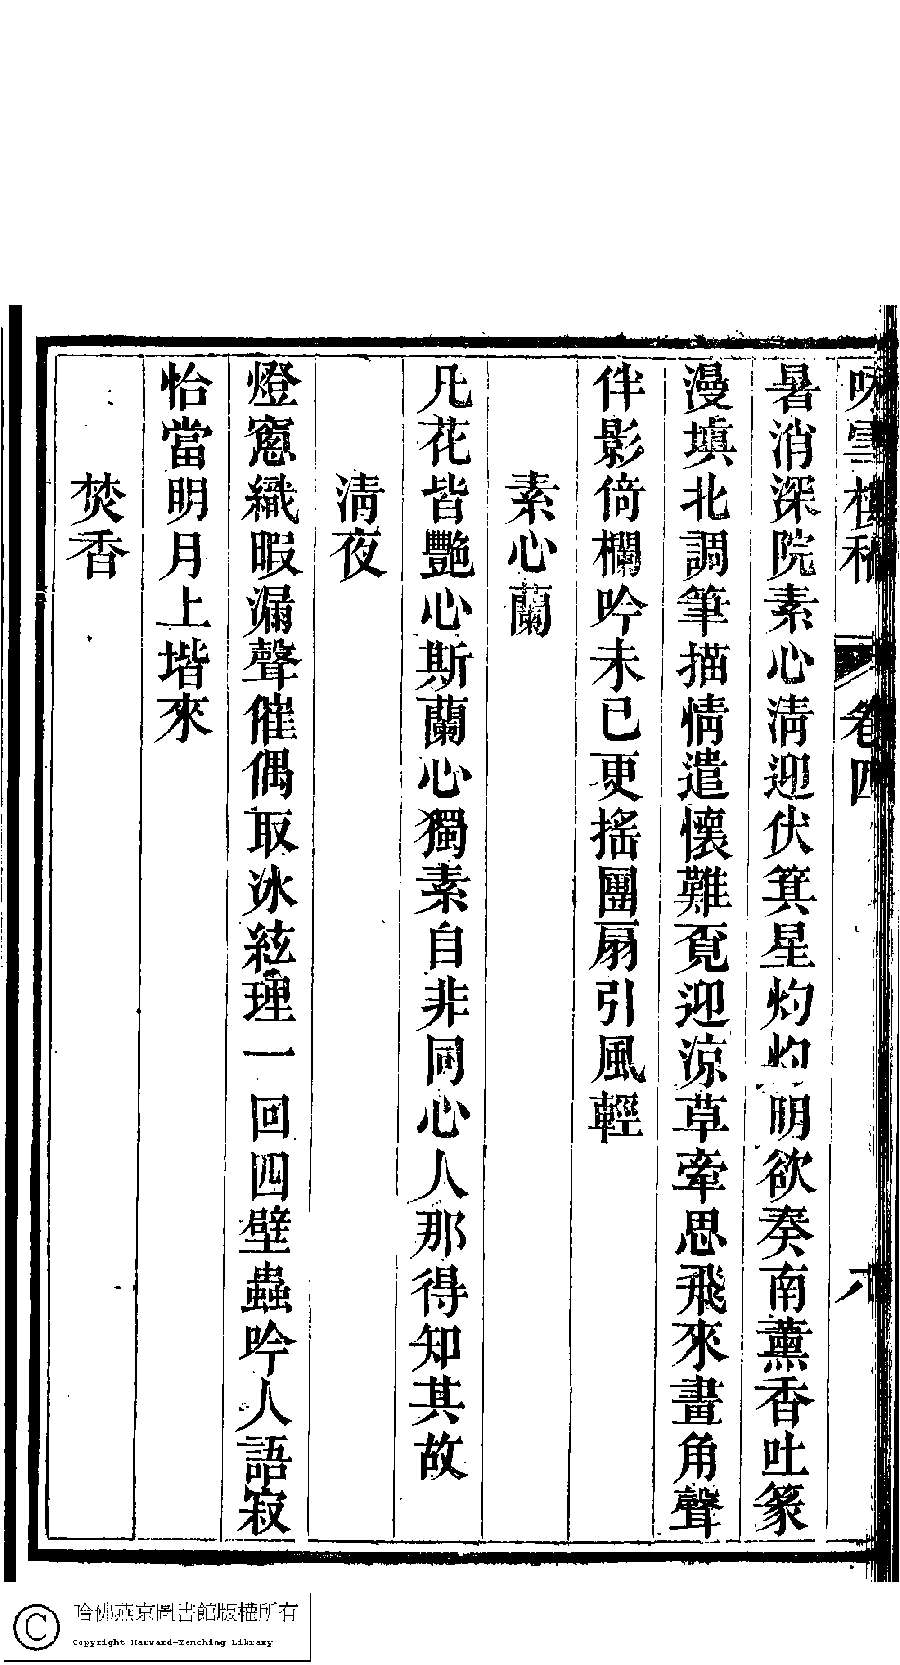 詠雪樓稿 卷四 六
暑消深院素心清迎伏箕星灼灼明欲奏南薰香吐篆
漫填北調筆描情遣懷難覓迎涼草牽思飛來畫角聲
伴影倚欄吟未已更搖團扇引風輕
素心蘭
凡花皆艷心斯蘭心獨素自非同心人那得知其故
清夜
燈窻織暇漏聲催偶取冰絃理一回四壁蟲吟人語寂
恰當明月上堦來
焚香
哈佛燕京圖書館版權所有
Copyright Harvard-Yenching Library